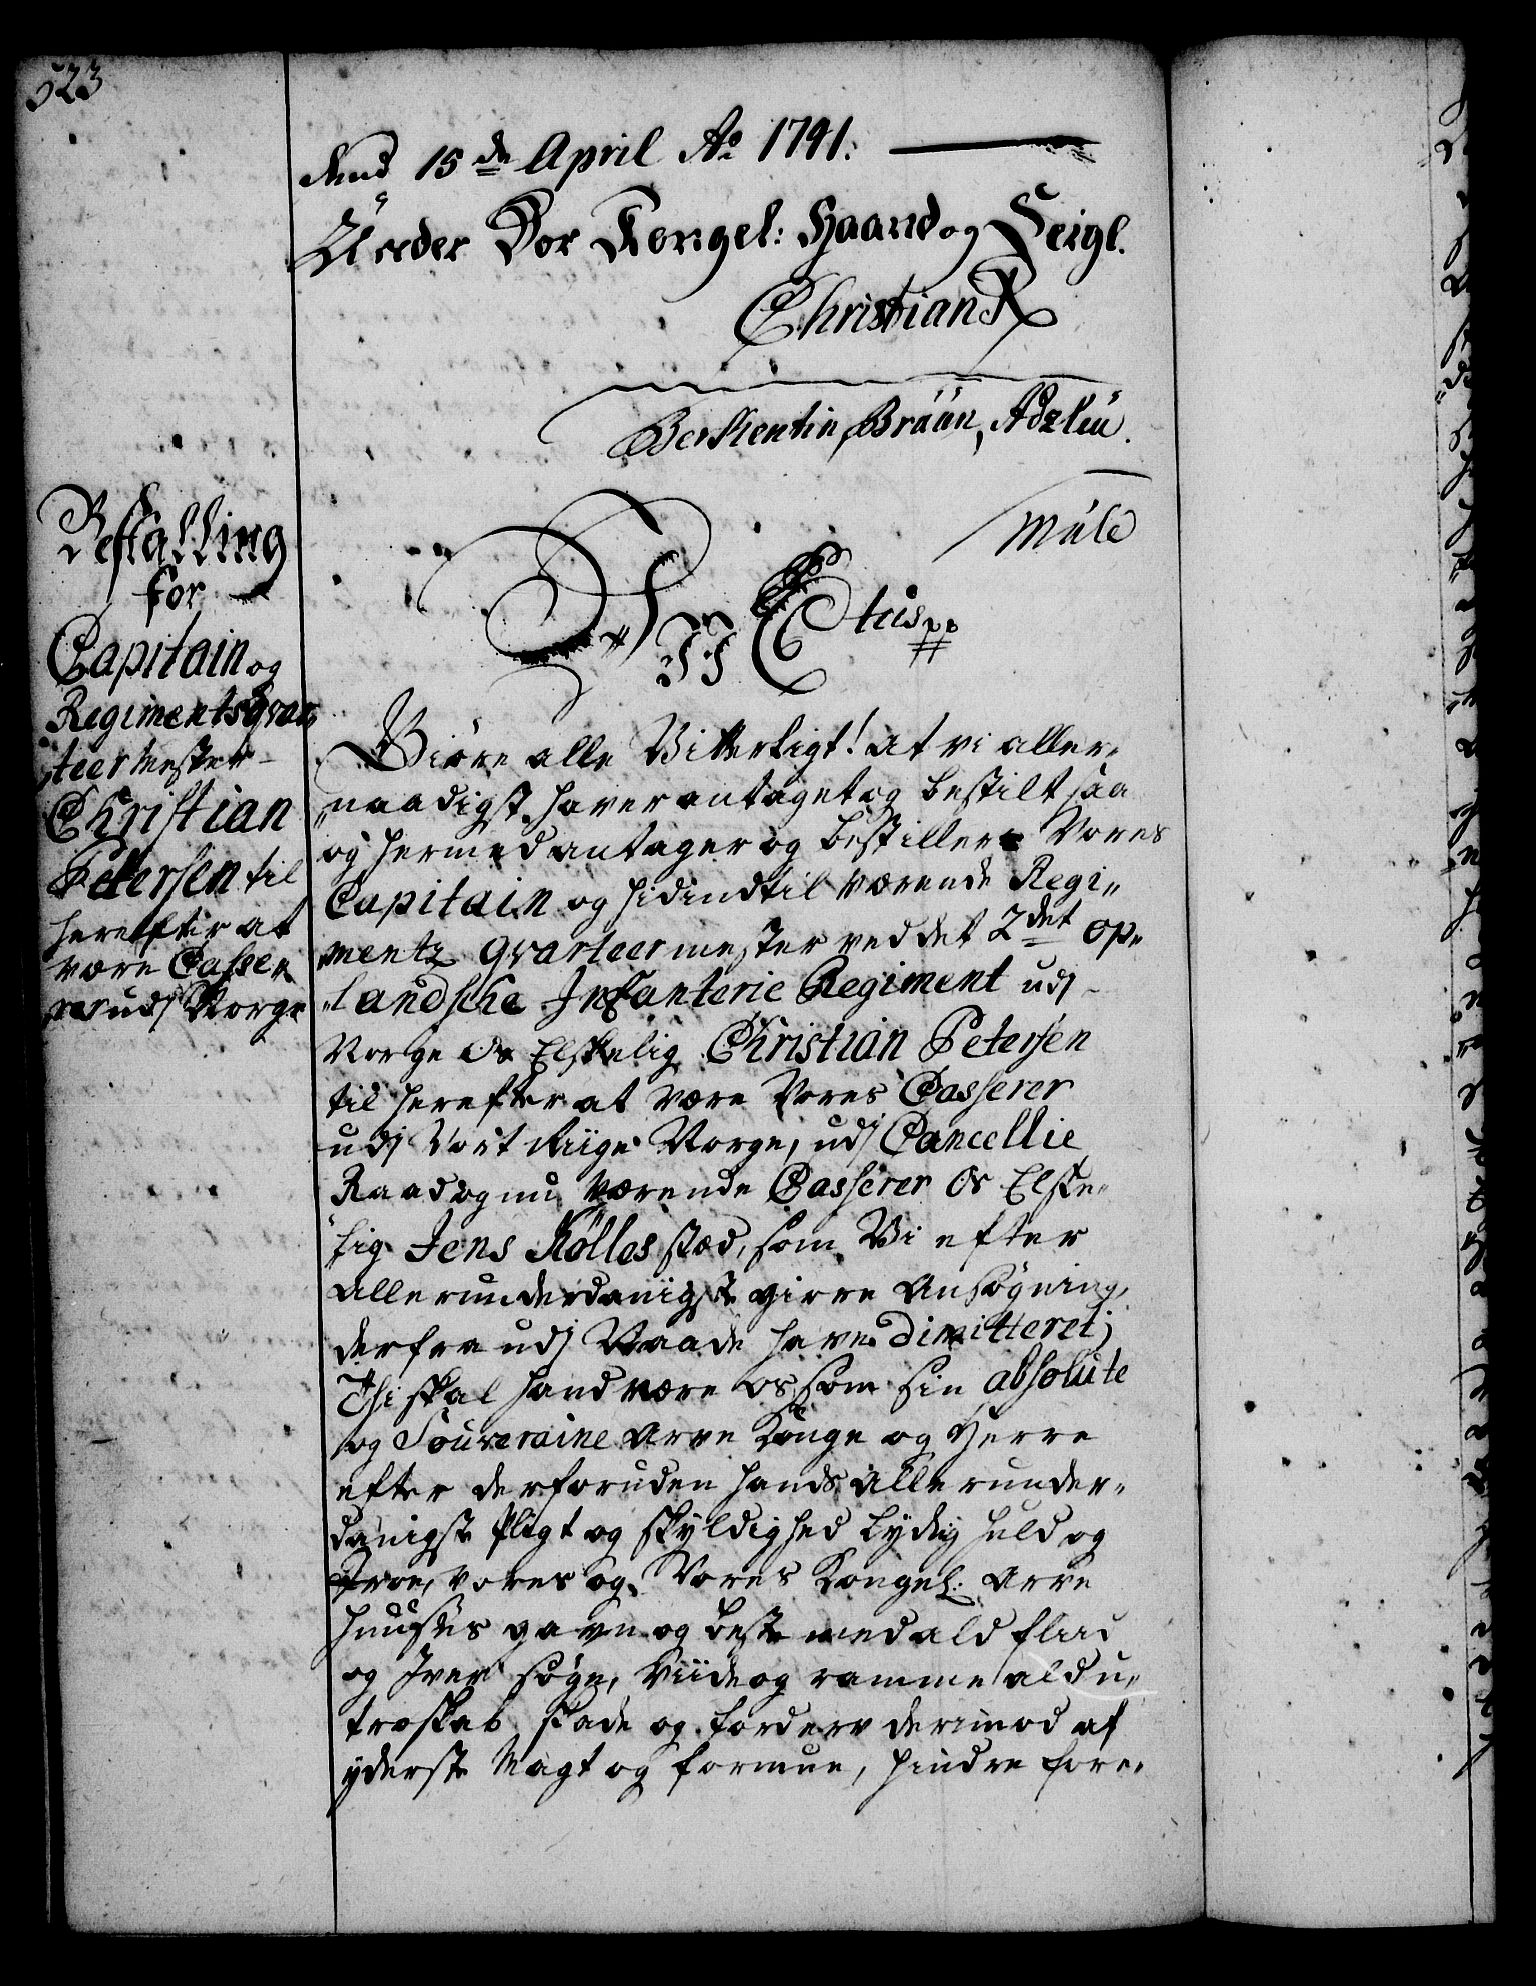 523
dend 15de April Ao 1741.
Under Vor Kongel: Haand og Seigl.
Christian R
Berkentin, Braun, Adeler.
Müle
Bestalling
for
Capitain og
Regimentsqvar
teermester
Christian
Petersen til
herefter at
være Casse-
rer udj Norge
D. C. VI. tus pp
Giøre alle Vitterligt! at vi aller-
naadigst haver antaget og bestilt saa
og hermed antager og bestiller Vores
Capitain og hidindtil værende Regi-
mentz Qvarteermester ved det 2det Op-
landsche Infanterie Regiment udj
Norge Os Elskelig Christian Petersen
til herefter at være Vores Casserer
udj Vort Riige Norge, udj Cancellie
Raad og nu værende Casserer Os Elske-
lig Jens Kølles stæd, som Vi efter
allerunderdanigst giorre Ansøgning,
derfra udj Naade have dimitteret;
Thi skal hand være os som sin absolute
og Souveraine Arve Konge og Herre
efter derforuden hands allerunder-
danigste Pligt og skyldighed lydig huld og
troe, vores og Vores Kongel: Arve
Huuses gavn og beste med ald fliid
og Iver søge, viide og ramme ald u-
troskab, skade og fordærv derimod af
yderste Magt og formue, hindre fore-